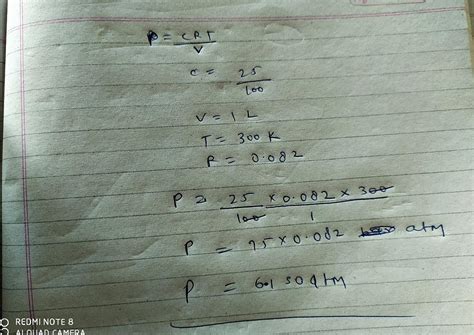 P = CRT
V
C = 25
100
V = 1 L
T = 300 K
R = 0.082
P = 25 × 0.082 × 300
100 1
P = 75 × 0.082 atm
P = 6.150 atm
REDMI NOTE 8
AI QUAD CAMERA